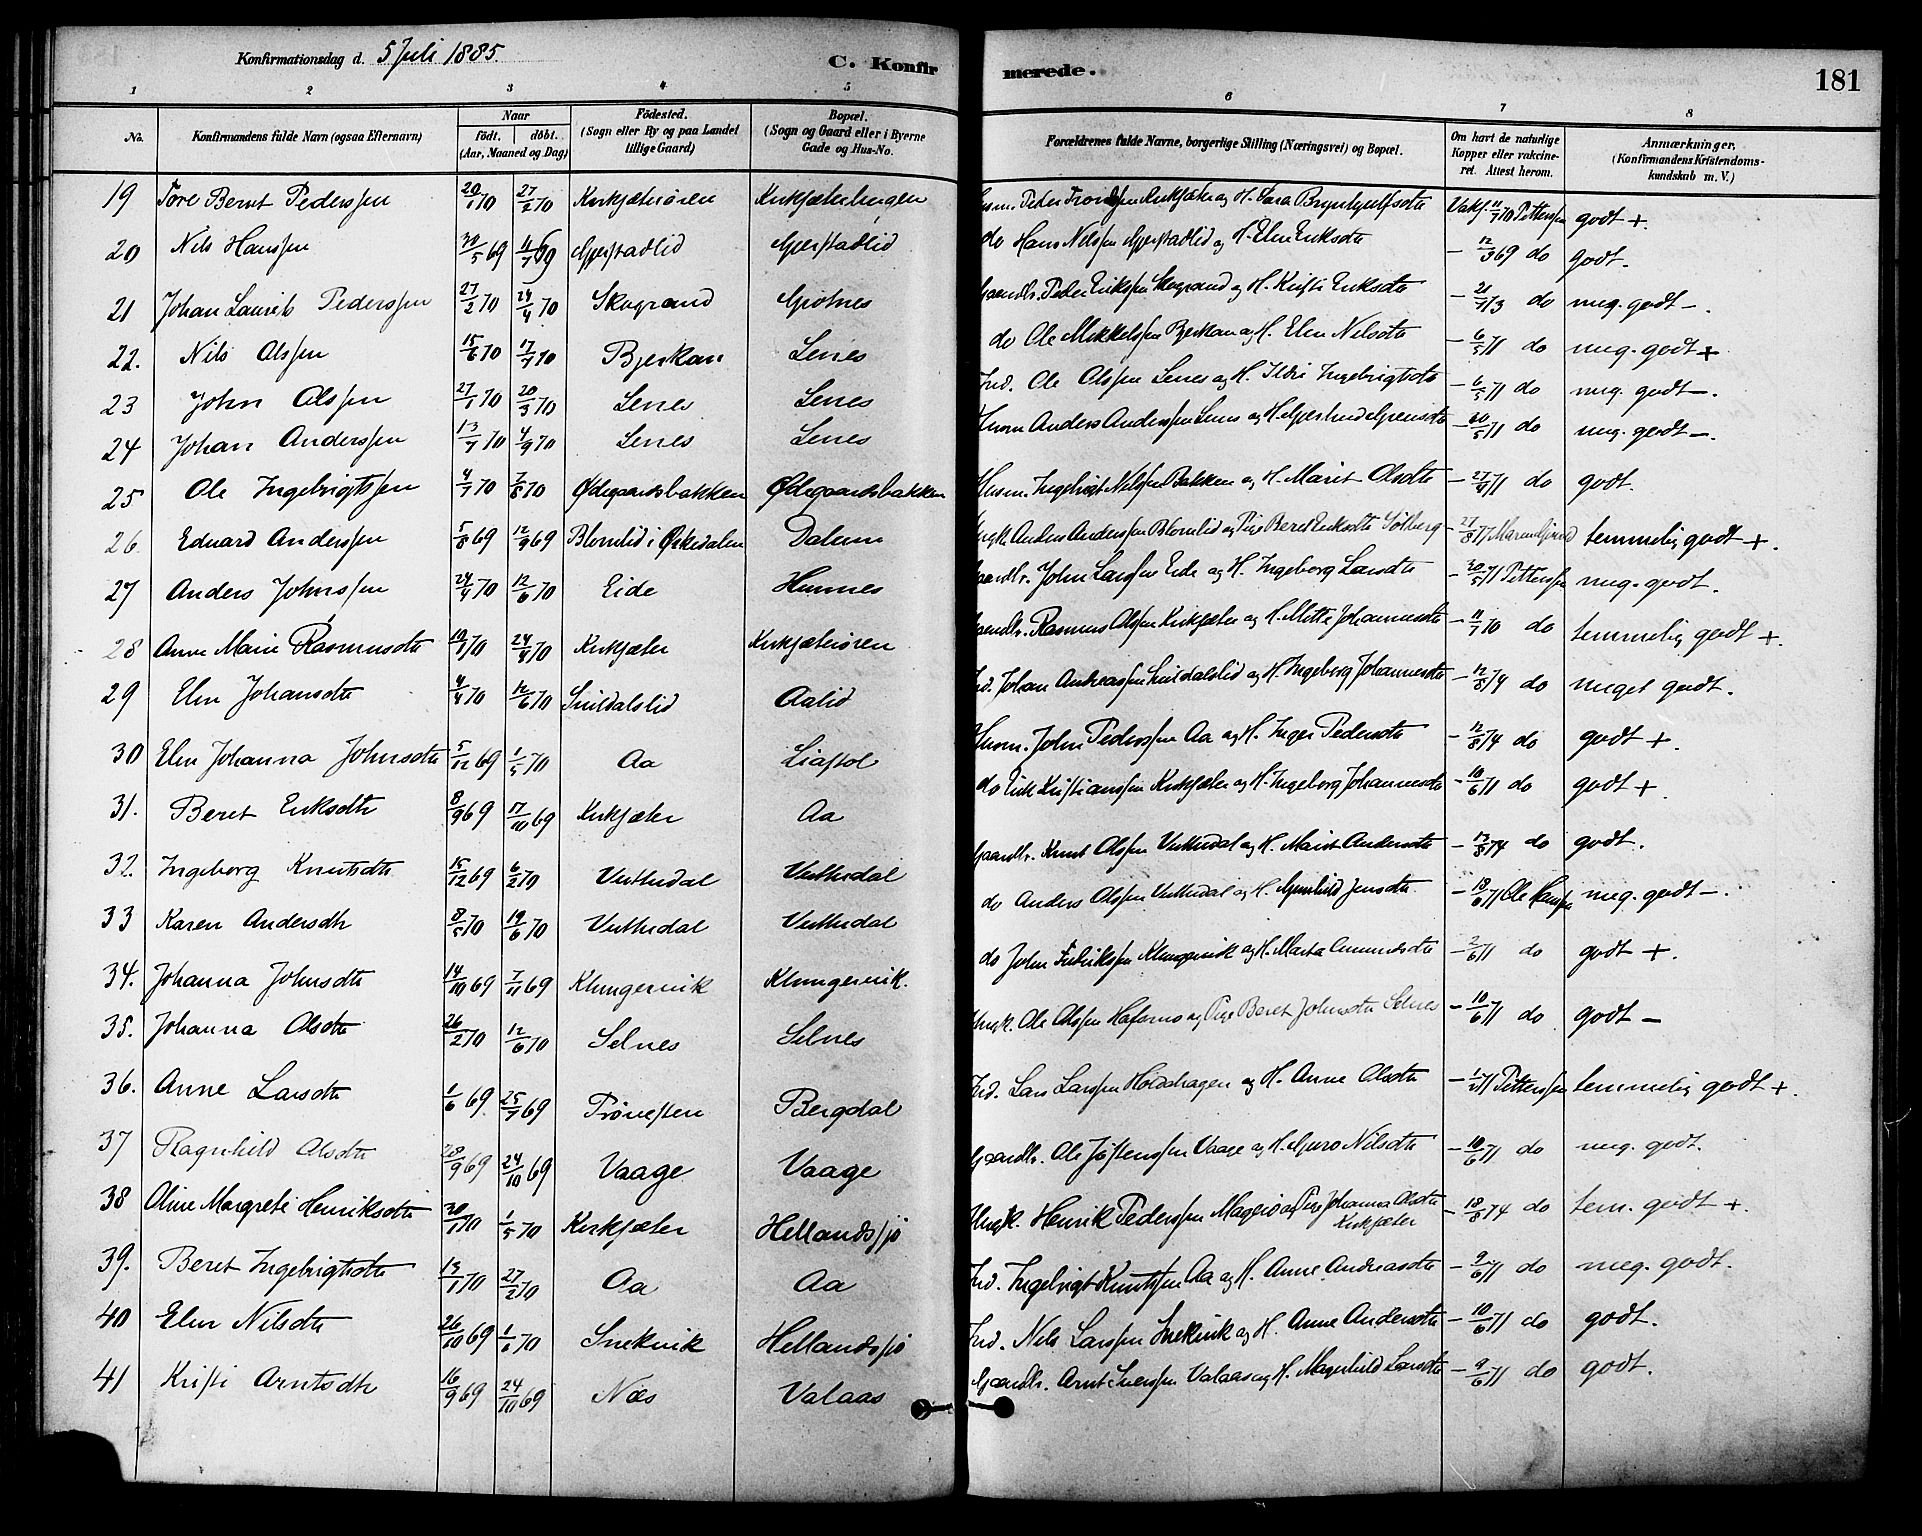 Konfirmationsdag d. 5 Juli 1885. C. Konfirmerede. 181
1 2 3 4 5 6 7 8
No. Konfirmandens fulde Navn (ogsaa Efternavn) Naar födt. döbt. (Aar, Maaned og Dag) Födested. (Sogn eller By og paa Landet tillige Gaard) Bopæl. (Sogn og Gaard eller i Byerne Gade og Hus-No. Forældrenes fulde Navne, borgerlige Stilling (Næringsvei) og Bopæl. Om havt de naturlige Kopper eller vakcineret. Attest herom. Anmærkninger. (Konfirmandens Kristendomskundskab m. V.)
19 Tore Beret Pederssen 20/1 70 27/2 70 Kirksæterøren Kirksæterhaugen Peder Kirksæter og H. Sara Brynhyulfsdtr Vakc. 11/7 70 Petterssen godt +.
20 Nils Hanssen 30/5 69 11/7 69 Gjerstadlid Gjerstadlid do Hans Nilssen Gjerstadlid og H. Elen Eriksdtr - 12/3 69 do godt.
21 Johan Laurits Pederssen 27/2 70 24/4 70 Skogrand Gjotnes Gaardbr. Peder Erikssen Skogrand og H. Kirsti Eriksdtr - 21/7 73 do meg. godt -.
22. Nils Olssen 15/6 70 17/7 70 Bjerkan Lenes do Ole Mikkelssen Bjerkan og H. Elen Nilsdtr - 6/5 71 do meg. godt +
23 John Olssen 27/1 70 20/3 70 Lenes Lenes Ind. Ole Olssen Lenes og H. Ildri Ingebrigtsdtr - 6/5 71 do meg. godt -.
24 Johan Anderssen 13/7 70 4/9 70 Lenes Lenes Husm Anders Anderssen Lenes og H. - 20/5 71 do meg. godt -.
25 Ole Ingebrigtssen 4/7 70 7/8 70 Ødegaardsbakken Ødegaardsbakken Husm. Ingebrigt Nilssen Bakken og H. Marit Olsdtr - 27/4 71 do godt.
26. Edvard Anderssen 5/8 69 12/9 69 Blomlid i Ørkedalen Dalum Ungk. Anders Anderssen Blomlid og Pige Beret Eriksdtr Solberg - 27/8 77 temmelig godt +.
27 Anders Johnssen 24/4 70 12/6 70 Eide Hennes Gaardbr. John Larssen Eide og H. Ingeborg Larsdtr - 20/5 71 Petterssen meg. godt.
28 Anne Marie Rasmusdtr 10/1 70 24/4 70 Kirksæter Kirksæterøren Gaardbr. Rasmus Olssen Kirksæter og H. Mette Johannesdtr - 11/7 70 do temmelig godt +
29 Elen Johansdtr 4/4 70 12/6 70 Snildalslid Aalid Ind. Johan Andreassen Snildalslid og H. Ingeborg Johannesdtr - 12/8 74 do meget godt.
30 Elen Johanna Johnsdtr 5/12 69 1/5 70 Aa Liastol Husm. John Pederssen Aa og H. Inger Pedersdtr - 12/8 74 do godt +.
31. Beret Eriksdtr 8/9 69 17/10 69 Kirksæter Aa do Erik Kristianssen Kirksæter og H. Ingeborg Johannesdtr - 10/6 71 do godt +.
32. Ingeborg Knutsdtr 15/12 69 6/2 70 Vuttudal Vuttudal Gaardbr. Knut Olssen Vuttudal og H. Marit Andersdtr - 13/8 74 do godt.
33 Karen Andersdtr 8/5 70 19/6 70 Vuttudal Vuttudal do Anders Olssen Vuttudal og H. Gunhild Jensdtr - 18/6 71 Ole Hanssen meg. godt -.
34. Johanna Johnsdtr 14/10 69 7/11 69 Klungervik Klungervik. do John Fredrikssen Klungervik og H. Marta Amundsdtr - 2/6 71 do godt +.
35. Johanna Olsdtr 26/2 70 12/6 70 Selnes Selnes Ungk. Ole Olssen og Pige Beret Johnsdtr Selnes - 10/6 71 do godt -
36. Anne Larsdtr 1/6 69. 25/7 69 Trønesten Bergdal Ind. Lars Larssen Holdshagen og H. Anne Olsdtr - 1/2 71 Petterssen temmelig godt +.
37 Ragnhild Olsdtr 28/9 69 24/10 69 Vaage Vaage Gaardbr. Ole Jostenssen Vaage og H. Guro Nilsdtr - 10/6 71 do meg. godt.
38 Oline Margrete Henriksdtr 30/1 70 1/5 70 Kirksæter Hellandssjø Ungk. Henrik Pederssen Magerø og Pige Johanna Olsdtr Kirksæter - 18/8 74 do tem. godt +.
39. Beret Ingebrigtsdtr 13/1 70 27/2 70 Aa Aa Ind. Ingebrigt Knutssen Aa og H. Anne Andreasdtr - 9/6 71 do meg. godt.
40 Elen Nilsdtr 26/10 69 1/6 70 Snekvik Hellandssjø Ind. Nils Larssen Snekvik og H. Anne Andersdtr - 10/6 71 do godt.
41 Kristi Arntsdtr 16/9 69 24/10 69 Næs Valaas Gaardbr. Arnt Iverssen Valaas og H. Magnhild Larsdtr - 9/6 71 do godt.